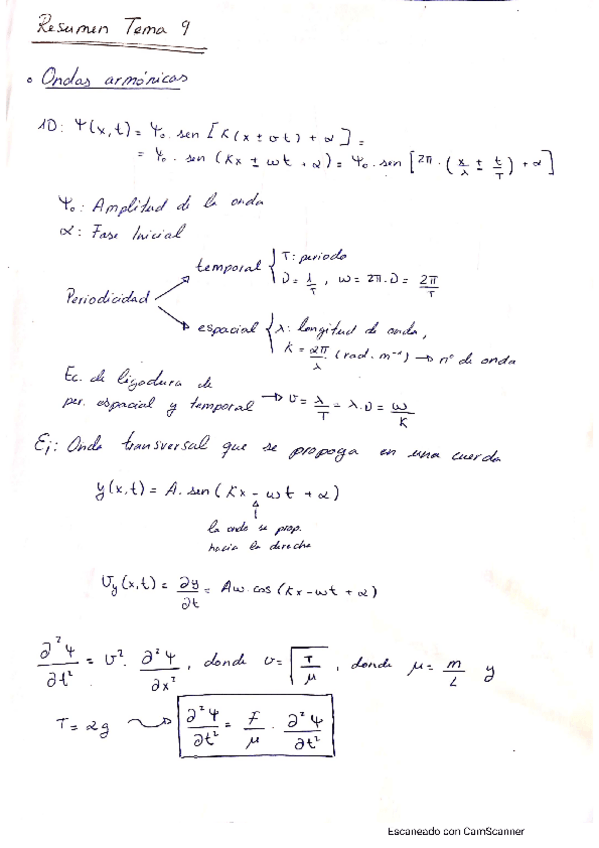 Resumen Tema 9
• Ondas armónicas
1D: Ψ(x,t) = Ψ₀ · sen [K(x ± vt) + α] =
= Ψ₀ · sen (Kx ± ωt + α) = Ψ₀ · sen [2π · (x/λ ± t/T) + α]
Ψ₀: Amplitud de la onda
α: Fase Inicial
Periodicidad
temporal { T: periodo
ν = λ/T, ω = 2π·ν = 2π/T
espacial { λ: longitud de onda,
K = 2π/λ (rad·m⁻¹) → nº de onda
Ec. de ligadura de
per. espacial y temporal → v = λ/T = λ·ν = ω/K
Ej: Onda transversal que se propaga en una cuerda
y(x,t) = A · sen (Kx - ωt + α)
la onda se prop.
hacia la derecha
Vy(x,t) = ∂y/∂t = Aω · cos (Kx - ωt + α)
∂²Ψ/∂t² = v² · ∂²Ψ/∂x², donde v = √(T/μ), donde μ = m/L y
T = αg → ∂²Ψ/∂t² = F/μ · ∂²Ψ/∂t²
Escaneado con CamScanner